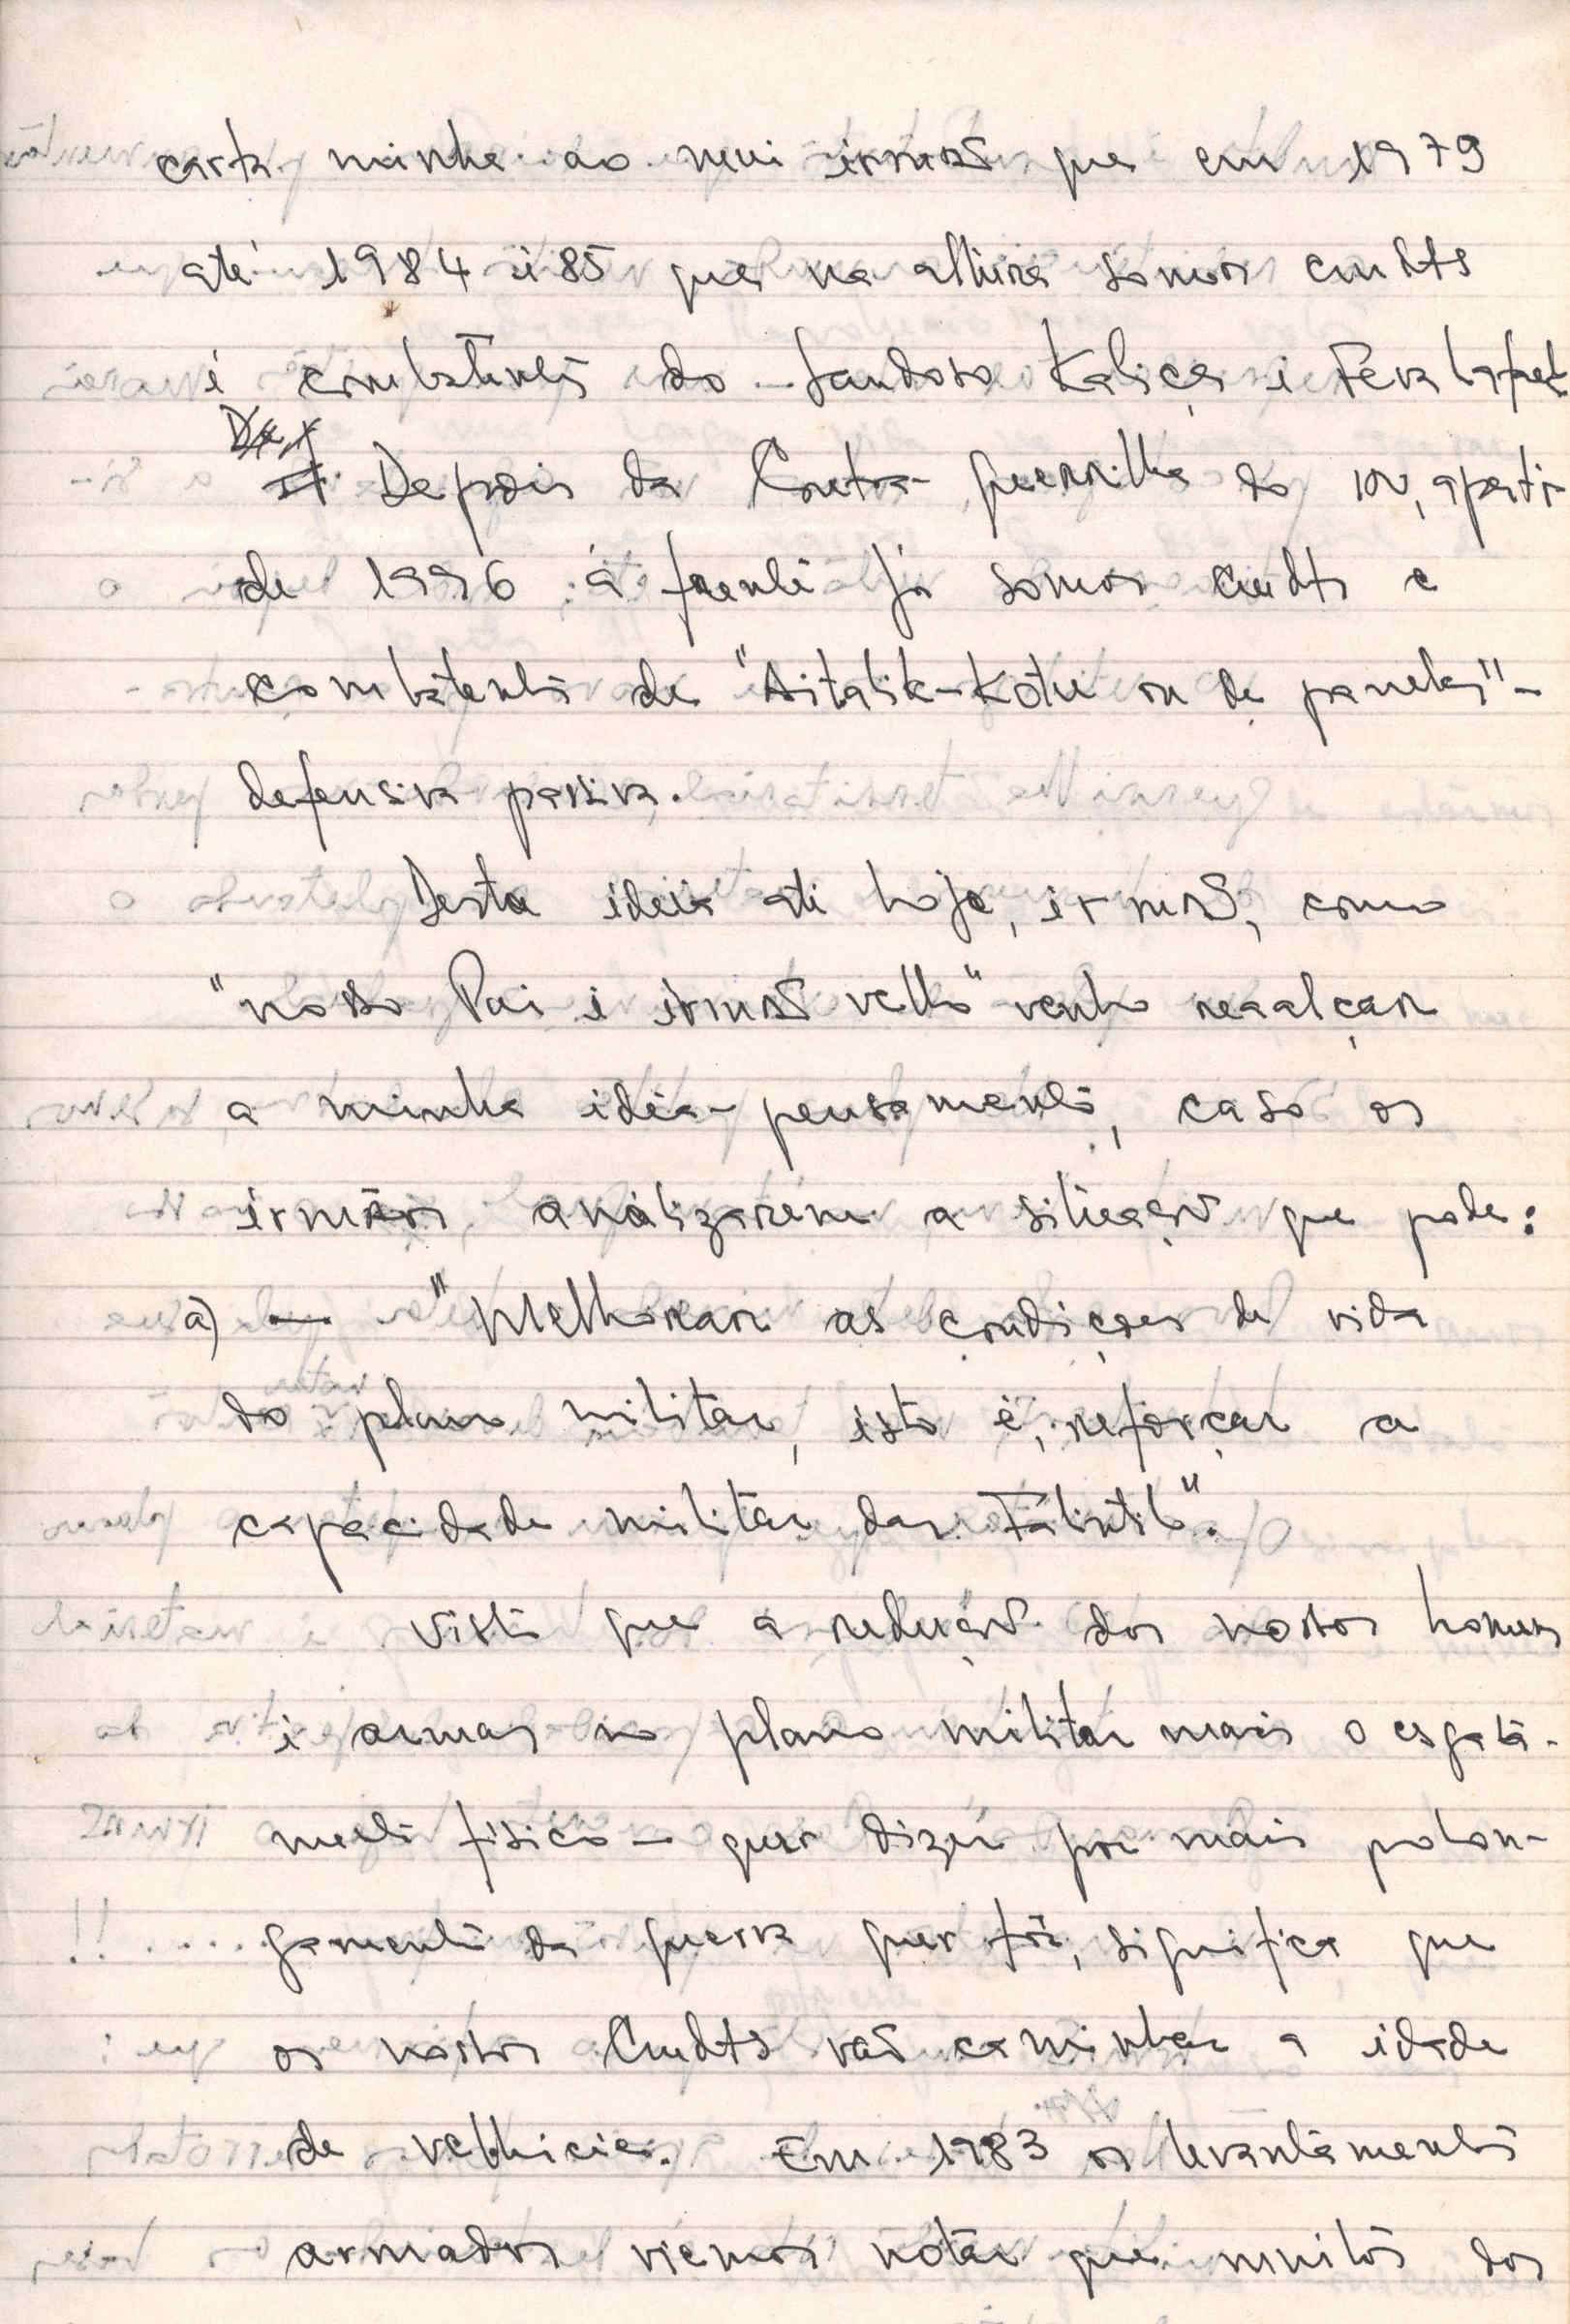 carta minha ao meu irmão que em 1979
até 1984 i 85 que na altura somos cmdts
i combatentes do saudoso Kalisa i Feva
Depois da Contra-guerrilha do ION, apartir
de 1996 á frente já somos cmdts e
combatentes de "Aitalik-Kotu ou de panelas"-
defensiva passiva.
Desta ideia ati hoje, irmão, como
"nosso Pai i irmão velho" venho reaalçar
a minha idéia-pensamento, caso os
irmãos análizarem a situação que pode:
a) — "Melhorar as condições de vida
do plano militar, isto é, reforçar a
capacidade militar das Falintil".
Visto que a redução dos nossos homens
i armas no plano militar mais o esgota-
mento fisico - quer dizer por mais polon-
gamento da guerra quer foi, significa que
os nossos Cmdts vão caminhar a idade
de velhicie. Em 1983 os levantamentos
armados viemos notar que muitos dos